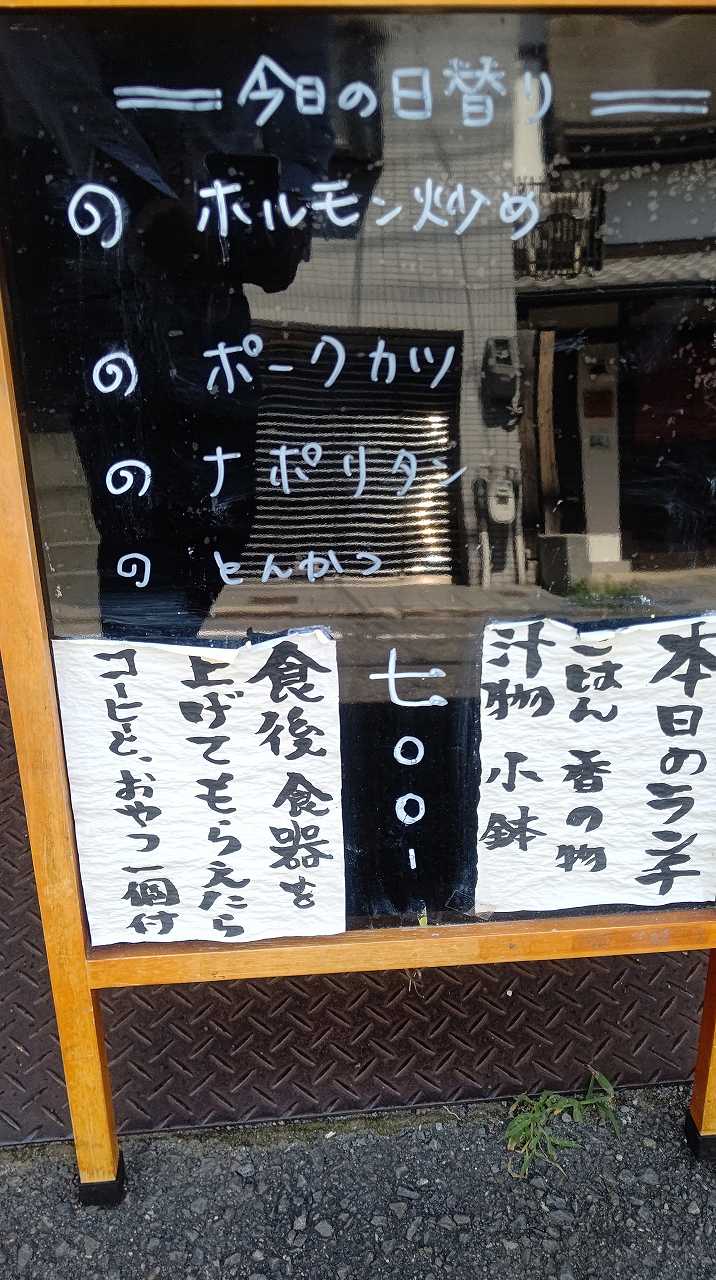 今日の日替り
の ホルモン炒め
の ポークカツ
の ナポリタン
の とんかつ
本日のランチ
ごはん 香の物
汁物 小鉢
七〇〇-
食後 食器を
上げてもらえたら
コーヒーと、おやつ一個付